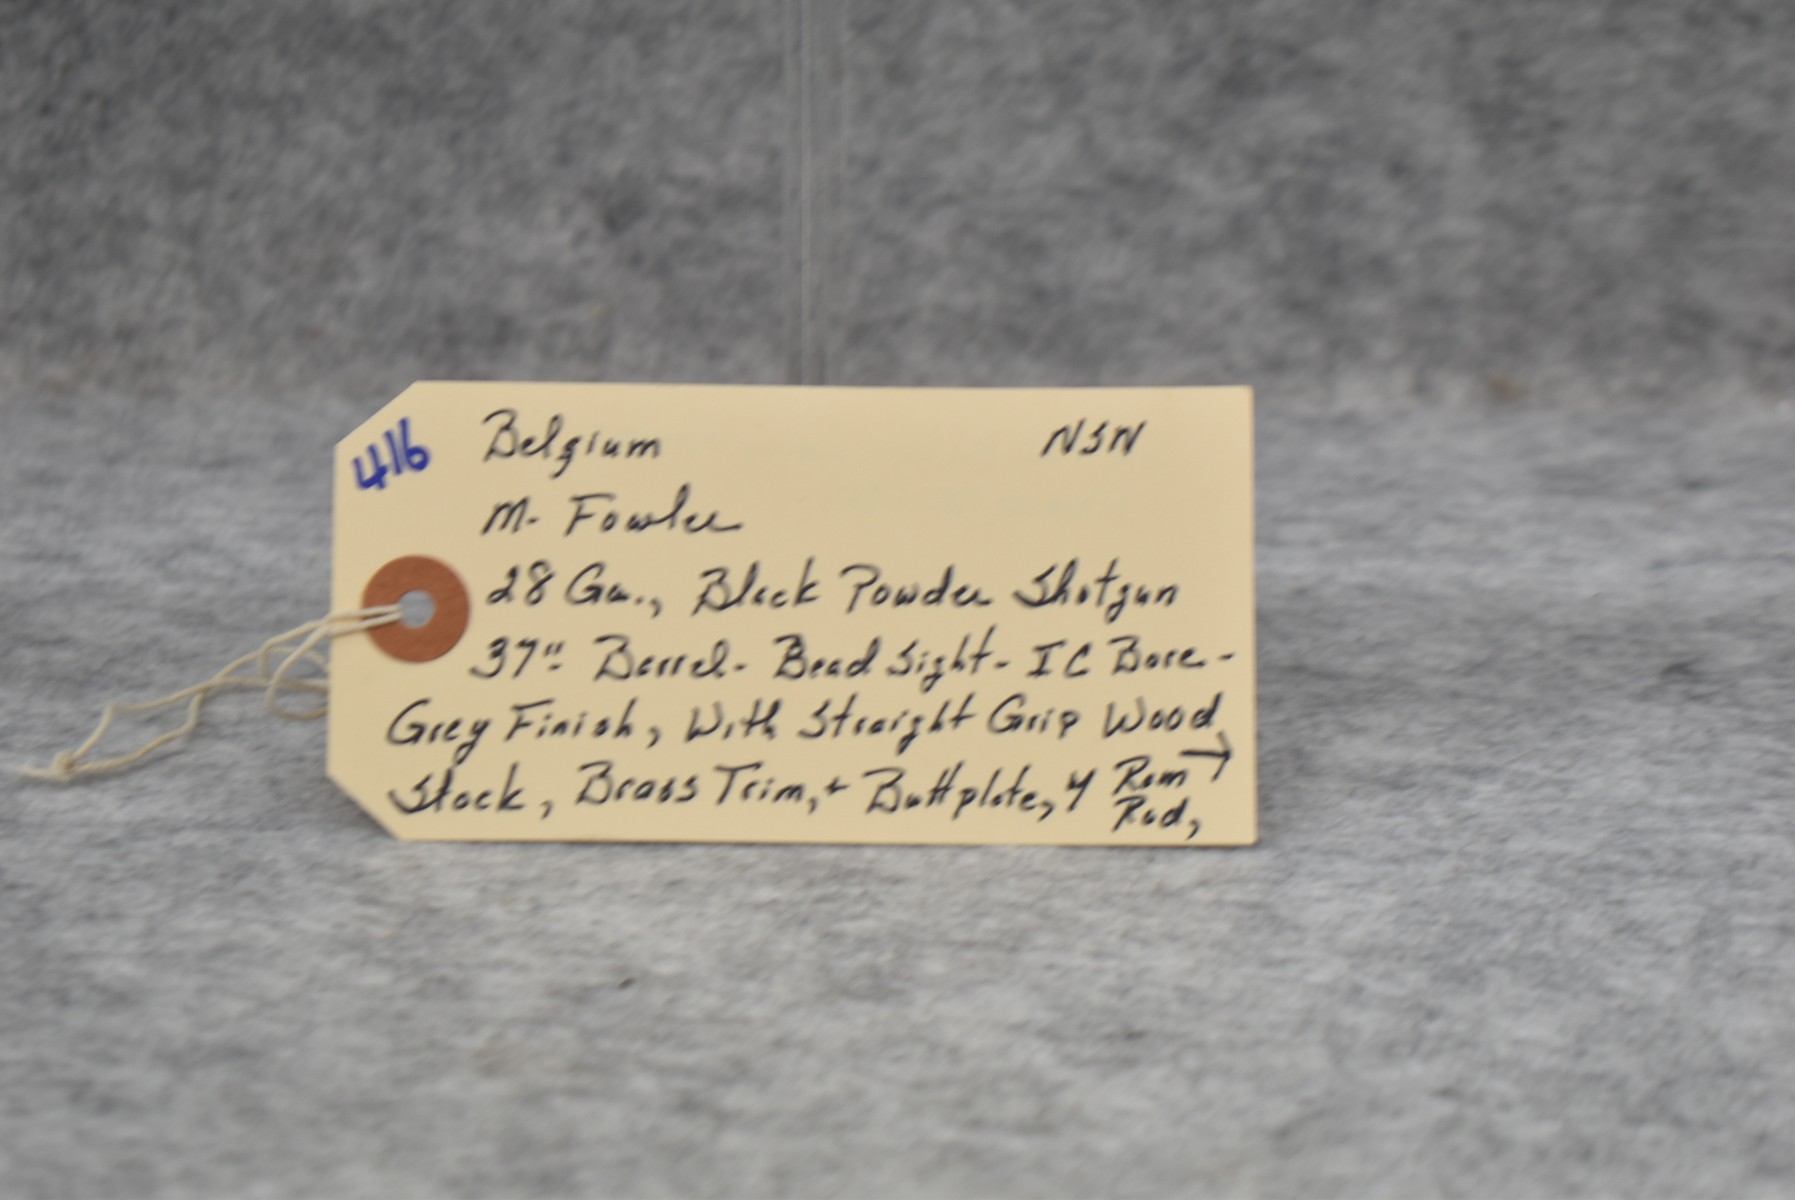 416
Belgium NSN
M- Fowler
28 Ga., Black Powder Shotgun
37"- Barrel - Bead Sight - IC Bore -
Grey Finish, With Straight Grip Wood
Stock, Brass Trim, + Buttplate, 4 Ram →
Rod,